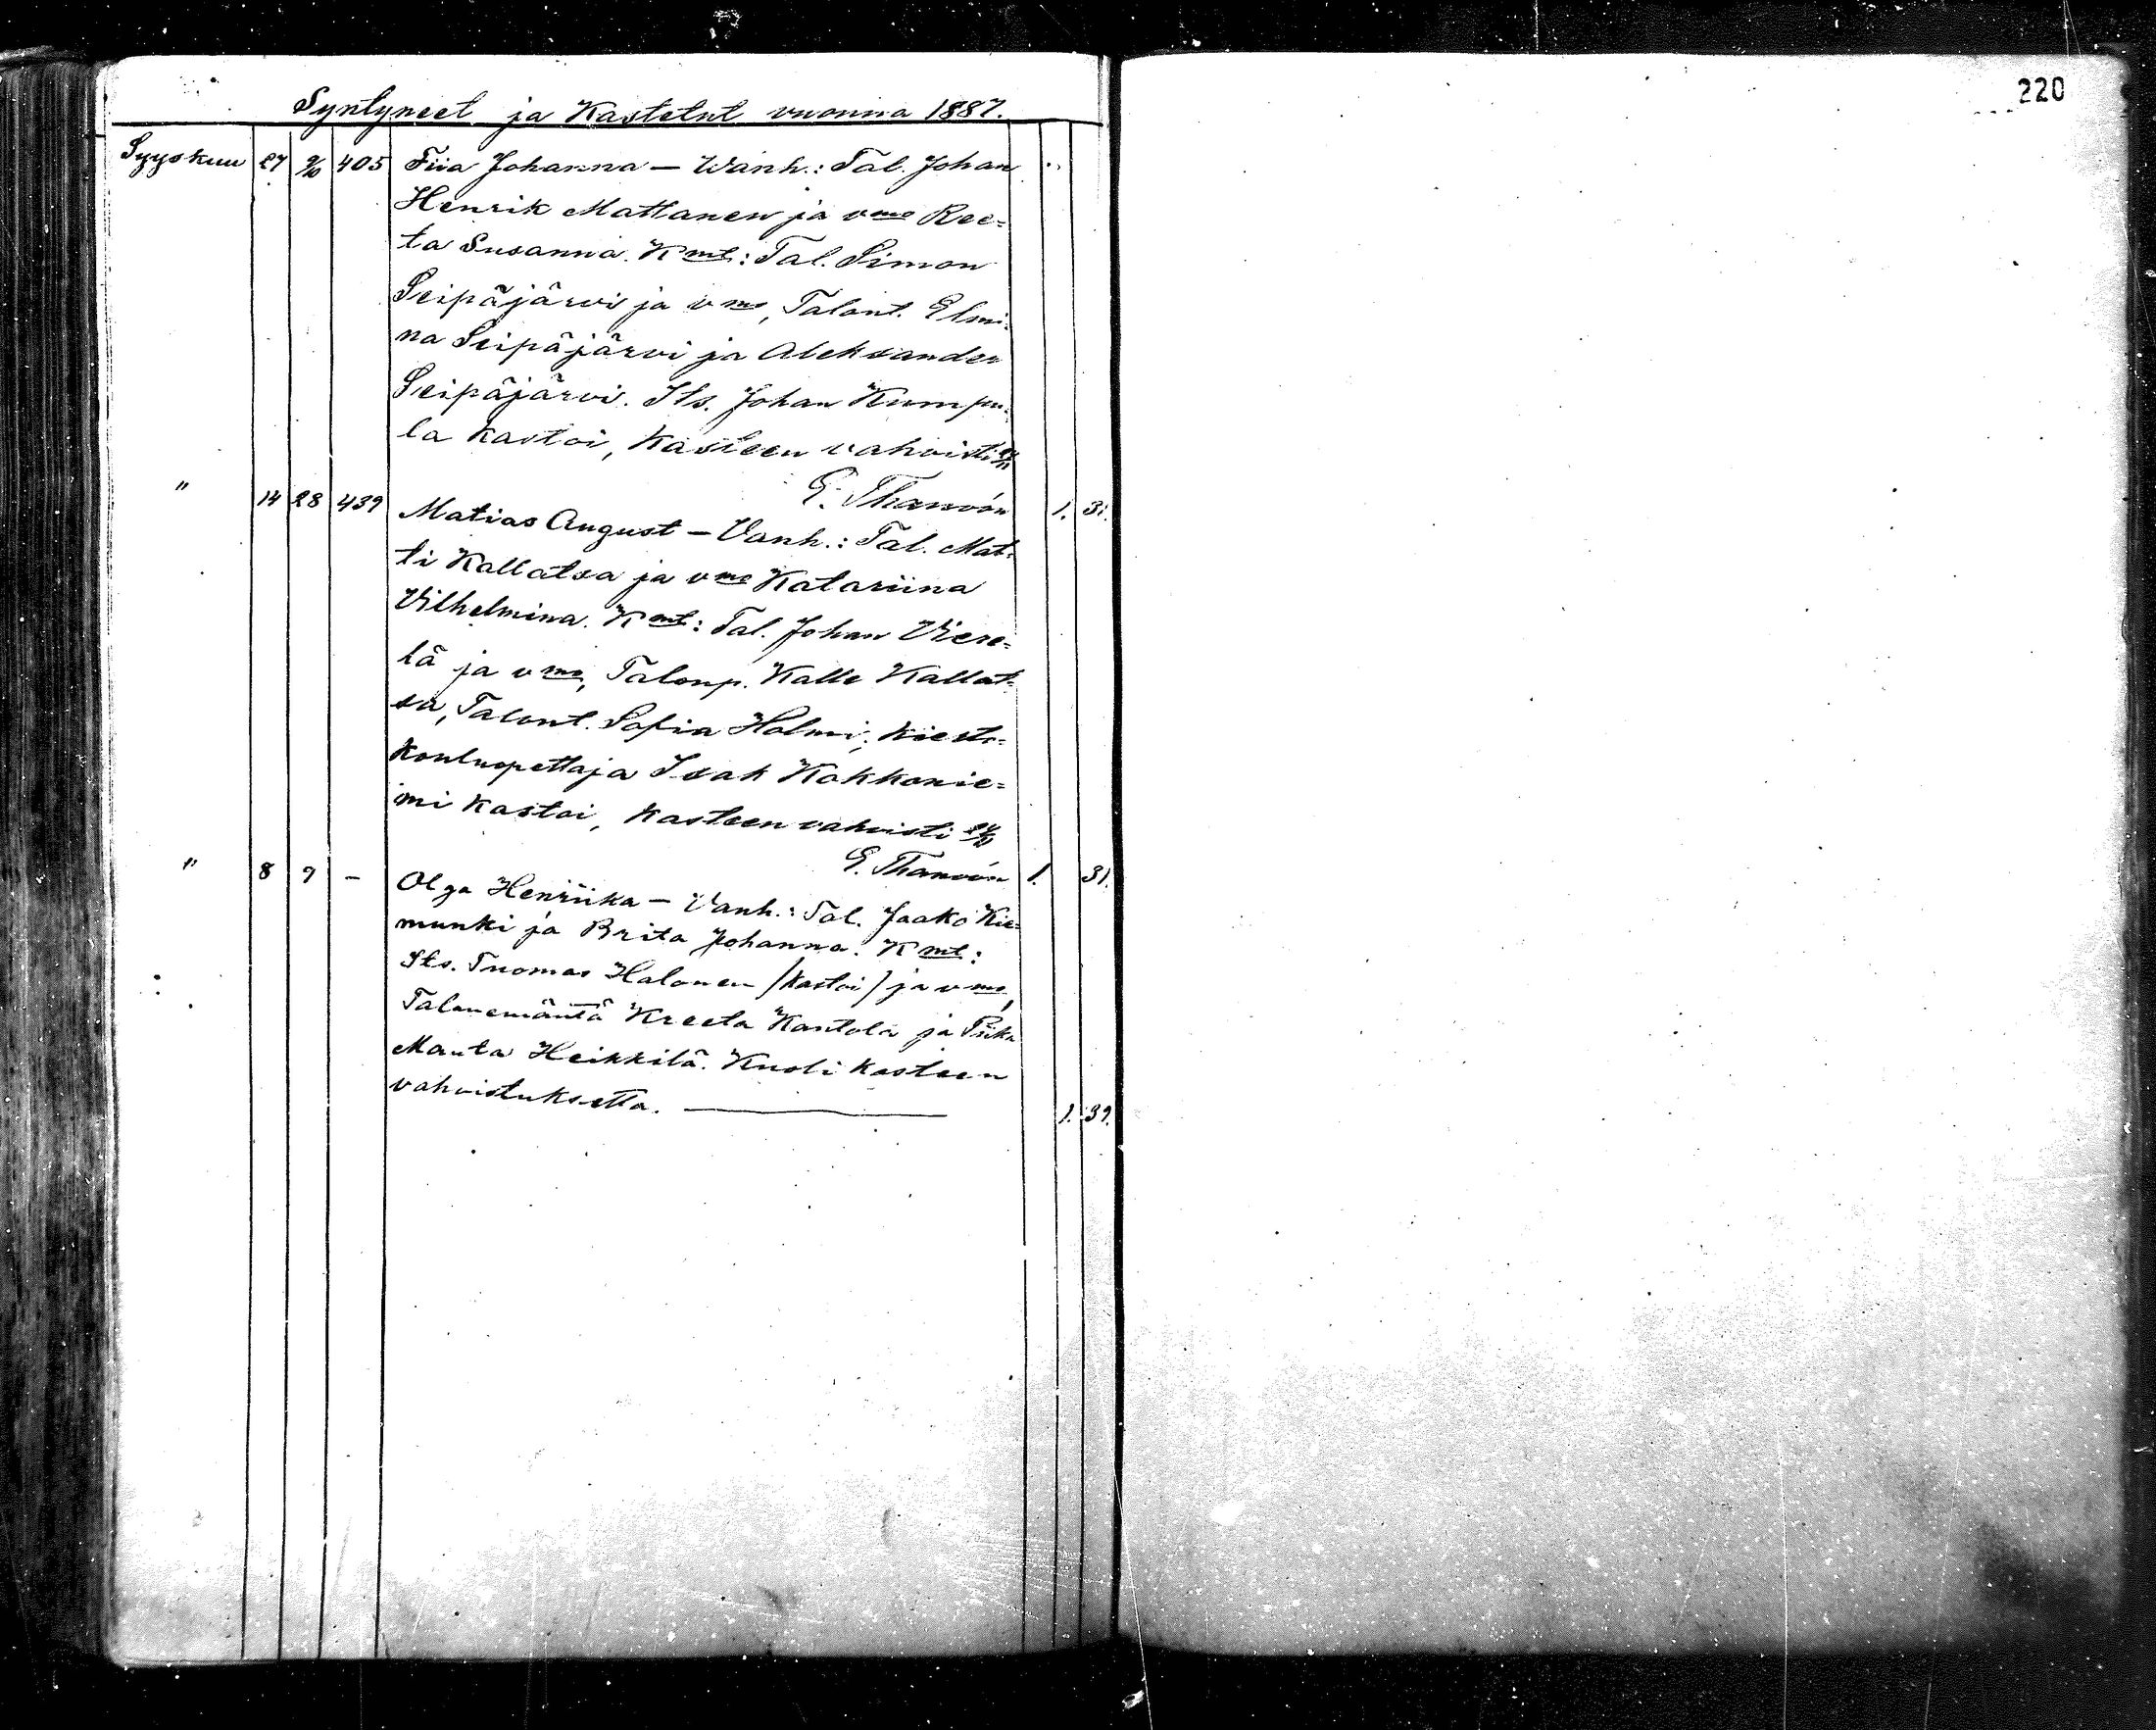 220
Syntyneet ja Kastetut vuonna 1887.
Syyskuu 27 2/10 405 Fiia Johanna – Wanh.: Tal. Johan
Henrik Mattanen ja vmo Ree=
ta Susanna. Kmt: Tal. Simon
Seipäjärvi ja vmo, Talont. Elmi=
na Seipäjärvi ja Aleksander
Seipäjärvi. Its. Johan Kumpu=
la kastoi, Kasteen vahvisti
E. Thauvón 1. 31.
" 14 28 439 Matias August – Vanh.: Tal. Mat=
ti Kallatsa ja vmo Katariina
Vilhelmina. Kmt: Tal. Johan Viere=
lä ja vmo, Talonp. Kalle Kallat=
sa, Talont. Sofia Holmi; Kierto=
kouluopettaja Isak Kokkonie=
mi kastoi, Kasteen vahvisti
E. Thauvón 1. 31.
" 8 9 – Olga Henriika – Vanh.: Tal. Jaako Kie=
munki ja Brita Johanna. Kmt:
Its. Tuomas Halonen /kastoi/ ja vmo,
Talonemäntä Kreeta Kantola ja Piika
Manta Heikkilä. Kuoli kasteen
vahvistuksetta. 1. 39.